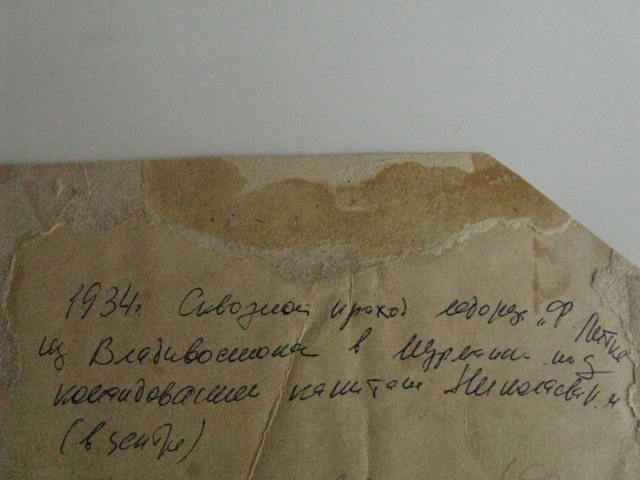 1934г. Сквозной проход ледорез „Ф. Литке
из Владивостока в Мурманск под
командованием капитан Николаева Н. М
(в центре)